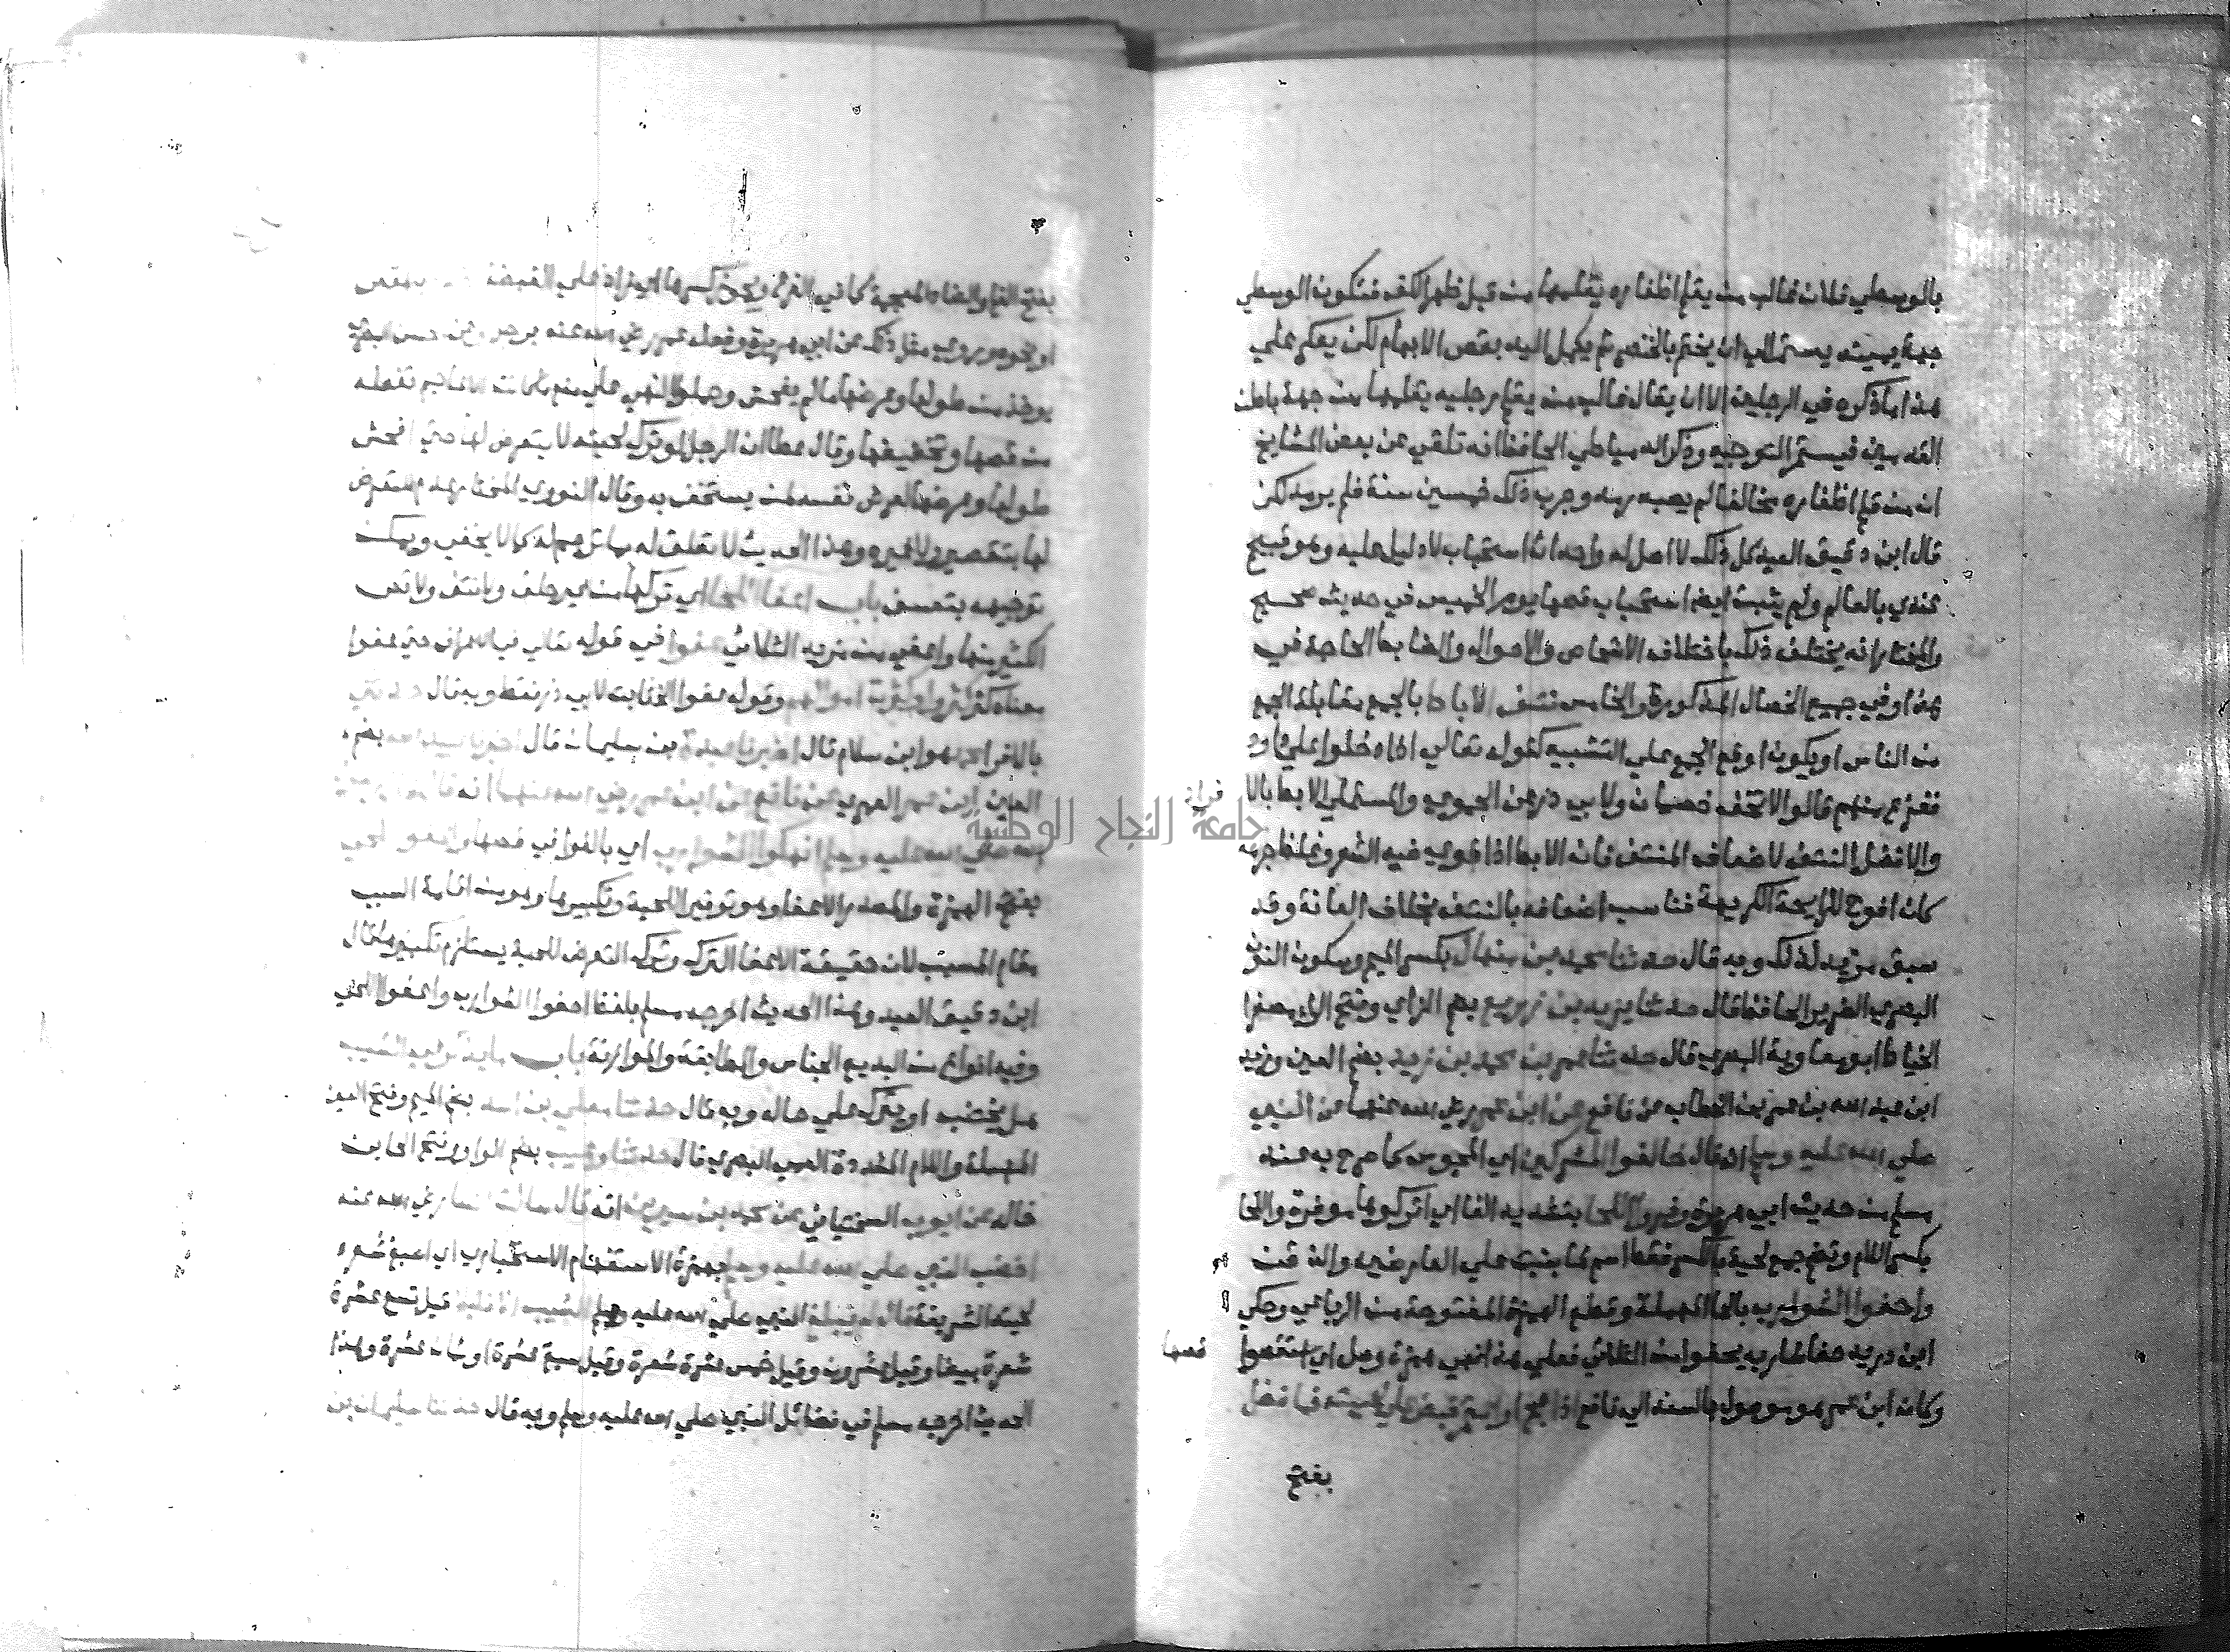 بالوسطي فلان غالب من يقلم اظفاره يقلمها من قبل ظهر الكف فتكون الوسطي
جهة يمينه يستمر الي ان يختم بالخنصر ثم يكمل اليد بقص الابهام لكن يعكر علي
هذا ما ذكره في الرجلين الا ان يقال غالب من يقلم رجليه يقلمها من جهة باطن
القدمين فيستمر التوجيه وذكر الدمياطي الحافظ انه تلقي عن بعض المشايخ
ان من قلم اظفاره مخالفا لم يصبه رمد وجرب ذلك خمسين سنة فلم يرمد لكن
قال ابن دقيق العيد كل ذلك لا اصل له واحداث استحباب لا دليل عليه وهو قبيح
عندي بالعالم ولم يثبت ايضا استحباب قصها يوم الخميس في حديث صحيح
والمختار انه يختلف ذلك باختلاف الاشخاص والاحوال والضابط الحاجة في
هذا وفي جميع الخصال المذكورة والخامس نتف الاباط بالجمع مقابلة الجمع
من الناس او يكون اوقع الجمع علي التثنيه كقوله تعالي اذ دخلوا علي داود
ففزع منهم قالوا لا تخف خصمان ولابي ذر عن الحموي والمستملي الابط بالا
فراد
والافضل النتف لاضعاف المنتف فان الابط اذا قوي فيه الشعر وغلظ جرمه
كان افوح للرايحة الكريهة فناسب اضعافه بالنتف بخلاف العانة وقد
سبق مزيد لذلك وبه قال حدثنا محمد بن منهال بكسر الميم وسكون النون
البصري الضرير الحافظ قال حدثنا يزيد بن زريع بضم الزاي وفتح الراء مصغرا
الخياط ابو معاوية البصري قال حدثنا عمر بن محمد بن زيد بضم العين وزيد
ابن عبد الله بن عمر بن الخطاب عن نافع عن ابن عمر رضي الله عنهما عن النبي
صلي الله عليه وسلم انه قال خالفوا المشركين اي المجوس كما صرح به عند
مسلم من حديث ابي هريرة وفروا اللحا بتشديد الفا اي اتركوها موفرة واللحا
بكسر اللام وتضم جمع لحية بالكسر فقط اسم لما ينبت علي العارضين والذقن
واحفوا الشوارب بالحا المهملة وقطع الهمزة المفتوحة من الرباعي وحكي
ابن دريد حفا شاربه يحفوا من الثلاثي فعلي هذا فهي همزة وصل اي استقصوا
قصها
وكان ابن عمر هو موصول بالسند الي نافع اذا حج او اعتمر قبض علي لحيته فما فضل
بفتح
بفتح الفا والضاد المعجمة كما في الفرع ويجوز كسرها اي زاد علي القبضة
او نحوه وروي مثل ذلك عن ابي هريرة وفعله عمر رضي الله عنه برجل وعن الحسن البصري
يوخذ من طولها وعرضها ما لم يفحش وحملوا النهي علي منع ما كانت الاعاجم تفعله
من قصها وتخفيفها وقال عطا ان الرجل لو ترك لحيته لا يتعرض لها حتي افحش
طولها وعرضها لعرض نفسه لمن يستخف به وقال النووي المختار عدم التعرض
لها بتقصير ولا غيره وهذا الحديث لا تعلق له بما ترجم له كما لا يخفي ويمكن
توجيهه بتعسف باب اعفا اللحا اي تركها من غير حلق ولا نتف ولا قص
الكثير منها واعفي من مزيد الثلاثي عفوا في قوله تعالي في الاعراف حتي عفوا
معناه كثروا وكثرت اموالهم وقوله عفوا الخ ثابت لابي ذر فقط وبه قال حدثني
بالافراد محمد هو ابن سلام قال اخبرنا عبدة بن سليمان قال اخبرنا عبيد الله بضم
العين ابن عمر العمري عن نافع عن ابن عمر رضي الله عنهما انه قال قال رسول
الله صلي الله عليه وسلم انهكوا الشوارب اي بالغوا في قصها واعفوا اللحي
بفتح الهمزة والمصدر الاعفا وهو توفير اللحية وتكثيرها وهو من اقامة السبب
مقام المسبب لان حقيقة الاعفا الترك وترك التعرض للحية يستلزم تكثيرها قال
ابن دقيق العيد وهذا الحديث اخرجه مسلم بلفظ احفوا الشوارب واعفوا اللحي
وفيه انواع من البديع الجناس والمطابقة والموازنة باب ما يذكر في الشيب
هل يخضب او يترك علي حاله وبه قال حدثنا معلي بن اسد بضم الميم وفتح العين
المهملة واللام المشددة العمي البصري قال حدثنا وهيب بضم الواو وفتح الها ابن
خالد عن ايوب السختياني عن محمد بن سيرين انه قال سالت انسا رضي الله عنه
اخضب النبي صلي الله عليه وسلم بهمزة الاستفهام الاستخباري اي اصبغ شعره
لحيته الشريفة قال لم يبلغ النبي صلي الله عليه وسلم الشيب الا قليلا قيل تسع عشرة
شعرة بيضا وقيل عشرون وقيل خمس عشرة شعرة وقيل سبع عشرة او ثمان عشرة وهذا
الحديث اخرجه مسلم في فضائل النبي صلي الله عليه وسلم وبه قال حدثنا سليمان بن
جامعة النجاح الوطنية